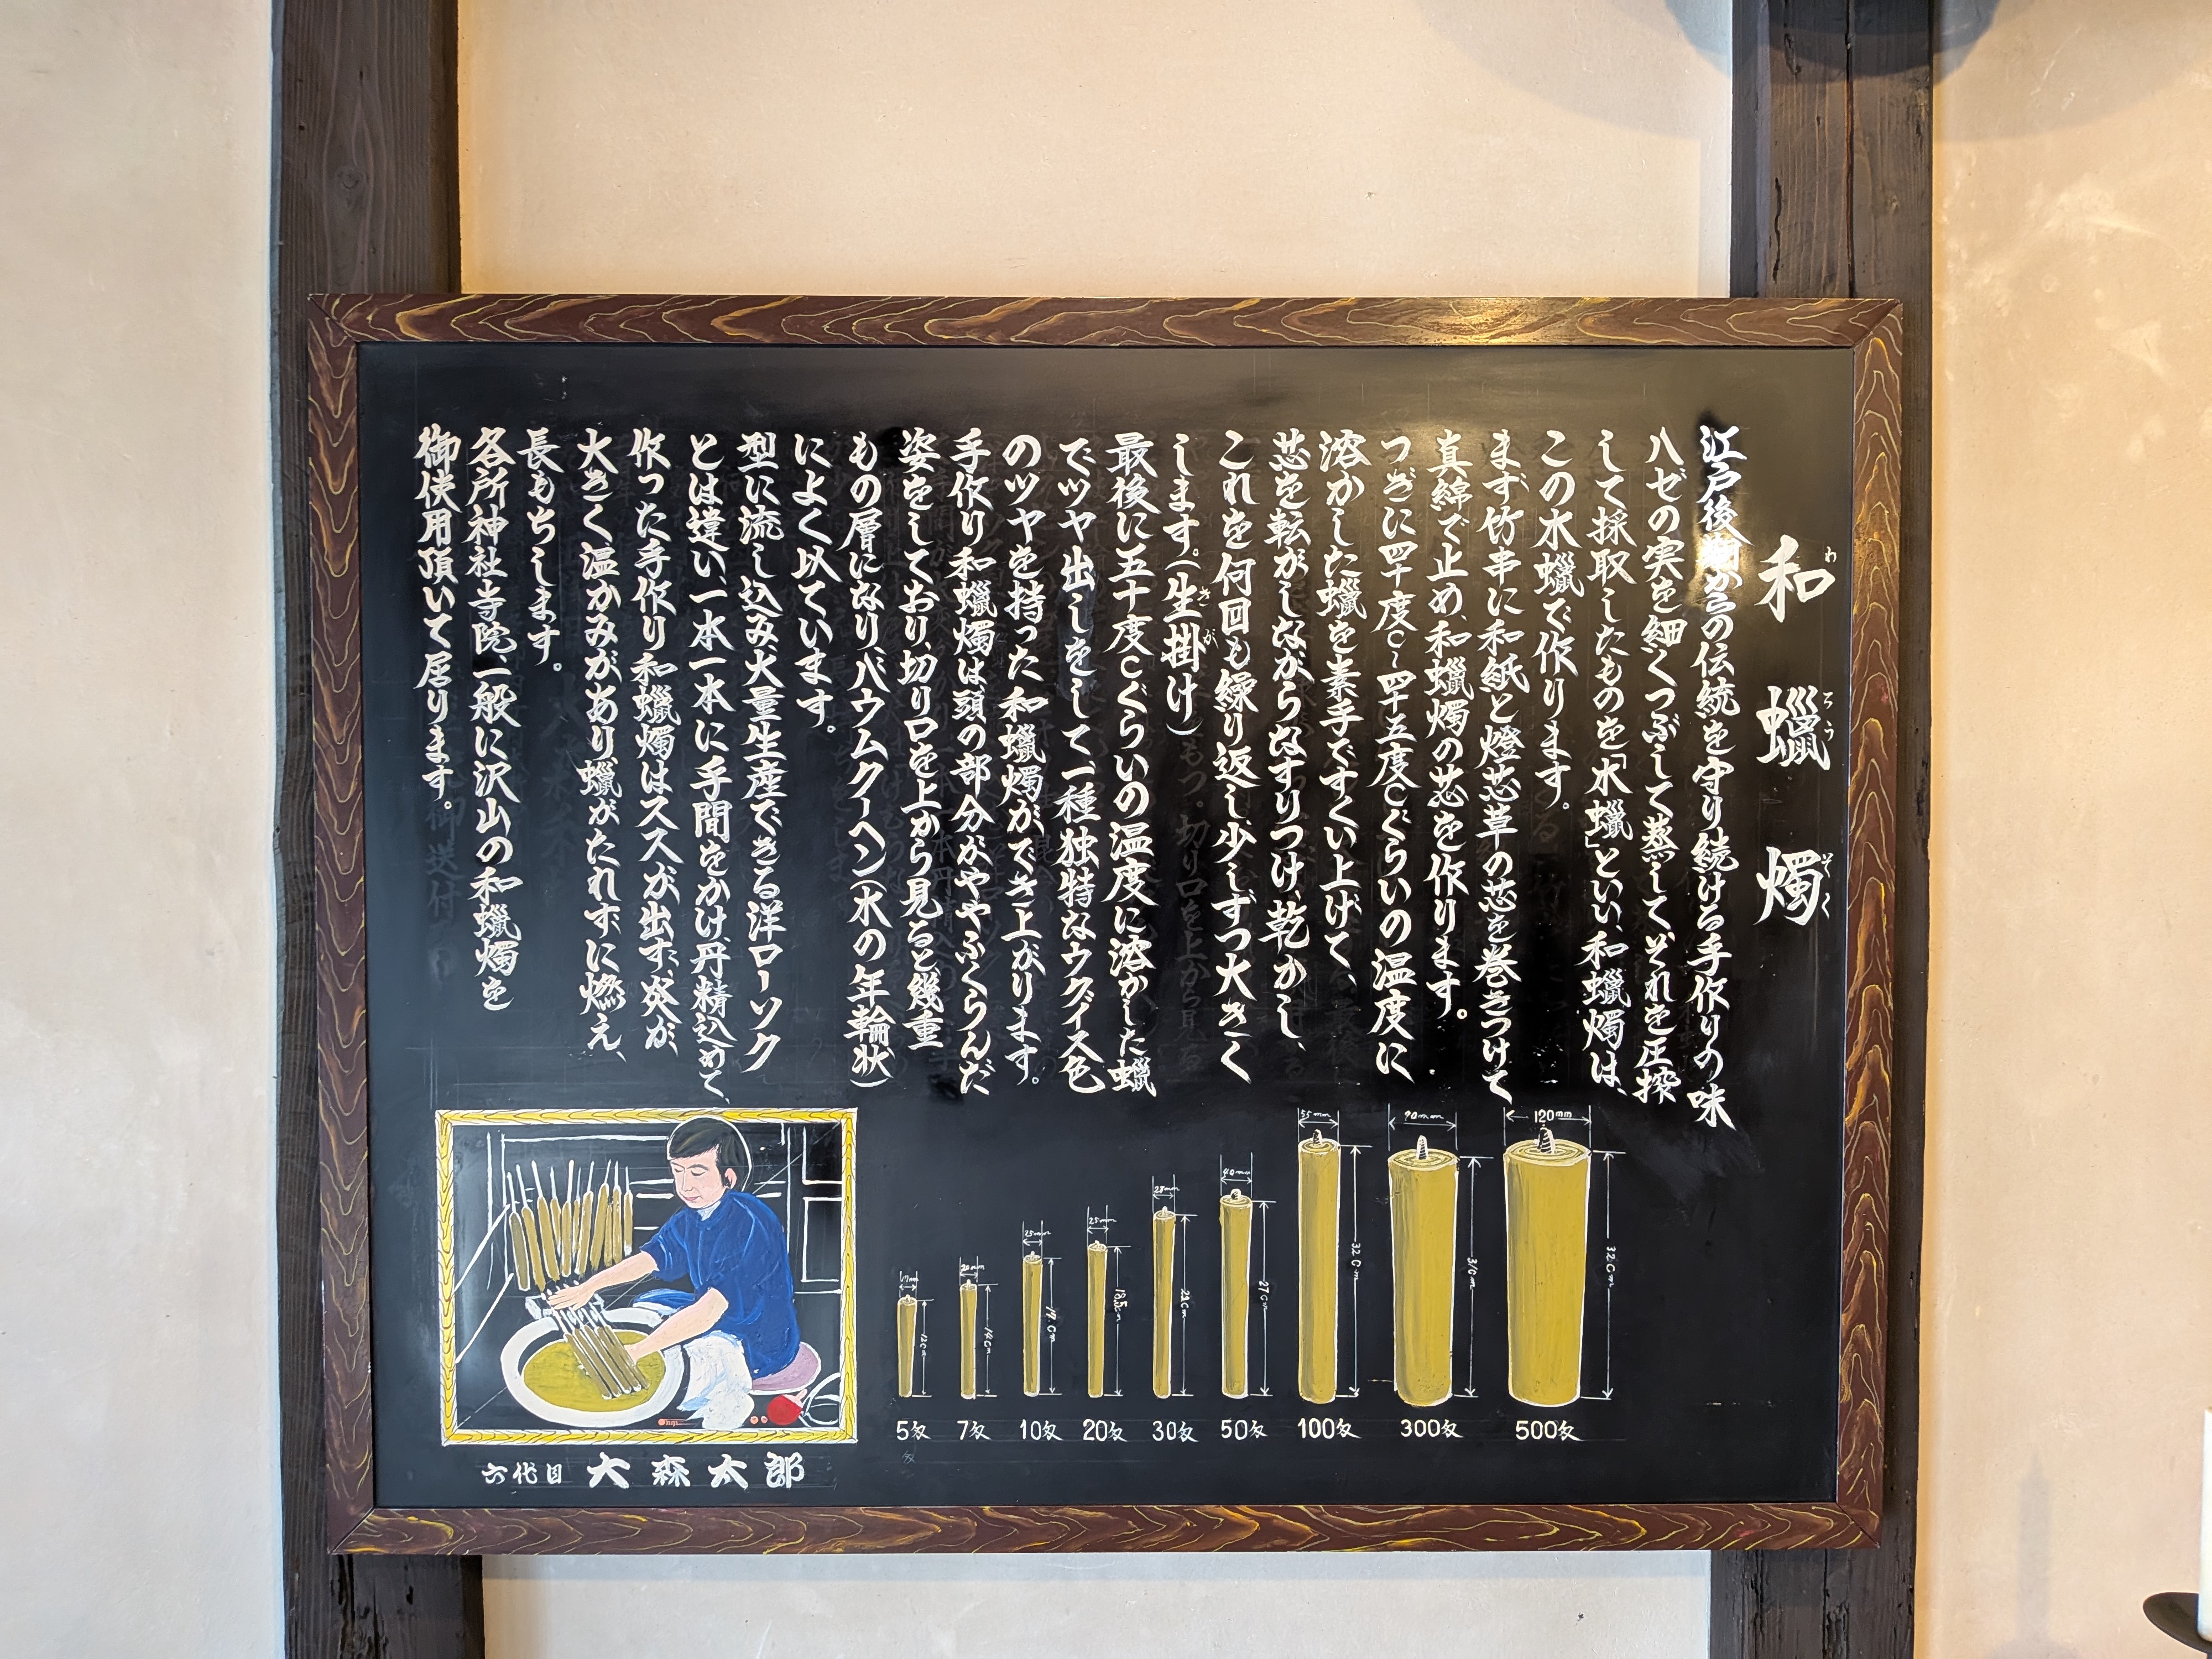 和蝋燭
わ ろう そく
江戸後期からの伝統を守り続ける手作りの味
ハゼの実を細くつぶして蒸してそれを圧搾
して採取したものを「木蝋」といい、和蝋燭は、
この木蝋で作ります。
まず竹串に和紙と燈芯草の芯を巻きつけて
真綿で止め、和蝋燭の芯を作ります。
つぎに四十度C〜四十五度Cぐらいの温度に
溶かした蝋を素手ですくい上げて、
芯を転がしながらなすりつけ、乾かし、
これを何回も繰り返し、少しずつ大きく
します。(生掛け)
き が
最後に五十度Cぐらいの温度に溶かした蝋
でツヤ出しをして、一種独特なウグイス色
のツヤを持った和蝋燭ができ上がります。
手作り和蝋燭は、頭の部分がややふくらんだ
姿をしており、切り口を上から見ると幾重
もの層になり、バウムクーヘン(木の年輪状)
によく似ています。
型に流し込み、大量生産できる洋ローソク
とは違い、一本一本に手間をかけ、丹精込めて、
作った手作り和蝋燭はススが出ず、炎が、
大きく温かみがあり、蝋がたれずに燃え、
長もちします。
各所神社寺院、一般に沢山の和蝋燭を
御使用頂いて居ります。
120mm
32cm
500匁
90mm
31cm
300匁
55mm
32cm
100匁
40mm
27cm
50匁
28mm
30匁
25mm
18.5cm
20匁
25mm
17cm
10匁
20mm
14cm
7匁
17mm
12cm
5匁
六代目 大森太郎